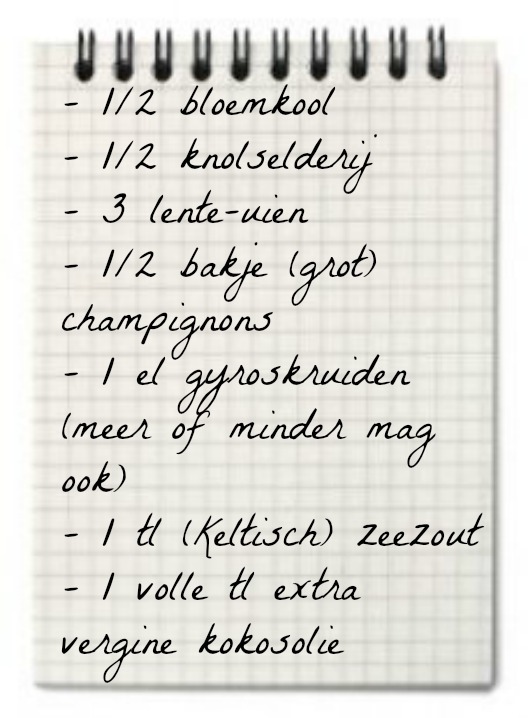 - 1/2 bloemkool
- 1/2 knolselderij
- 3 lente-uien
- 1/2 bakje (grot)
champignons
- 1 el gyroskruiden
(meer of minder mag
ook)
- 1 tl (Keltisch) zeezout
- 1 volle tl extra
vergine kokosolie